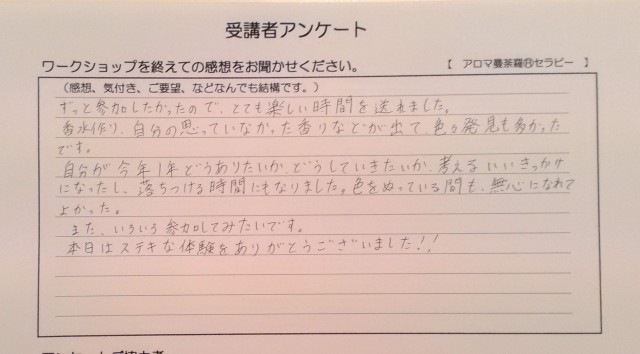 受講者アンケート
ワークショップを終えての感想をお聞かせください。 【 アロマ曼荼羅Ⓡセラピー 】
(感想、気付き、ご要望、などなんでも結構です。)
ずっと参加したかったので、とても楽しい時間を送れました。
香水作り、自分の思っていなかった香りなどが出て、色々発見も多かった
です。
自分が今年1年どうありたいか、どうしていきたいか、考えるいいきっかけ
になったし、落ちつける時間にもなりました。色をぬっている間も、無心になれて
よかった。
また、いろいろ参加してみたいです。
本日はステキな体験をありがとうございました!!